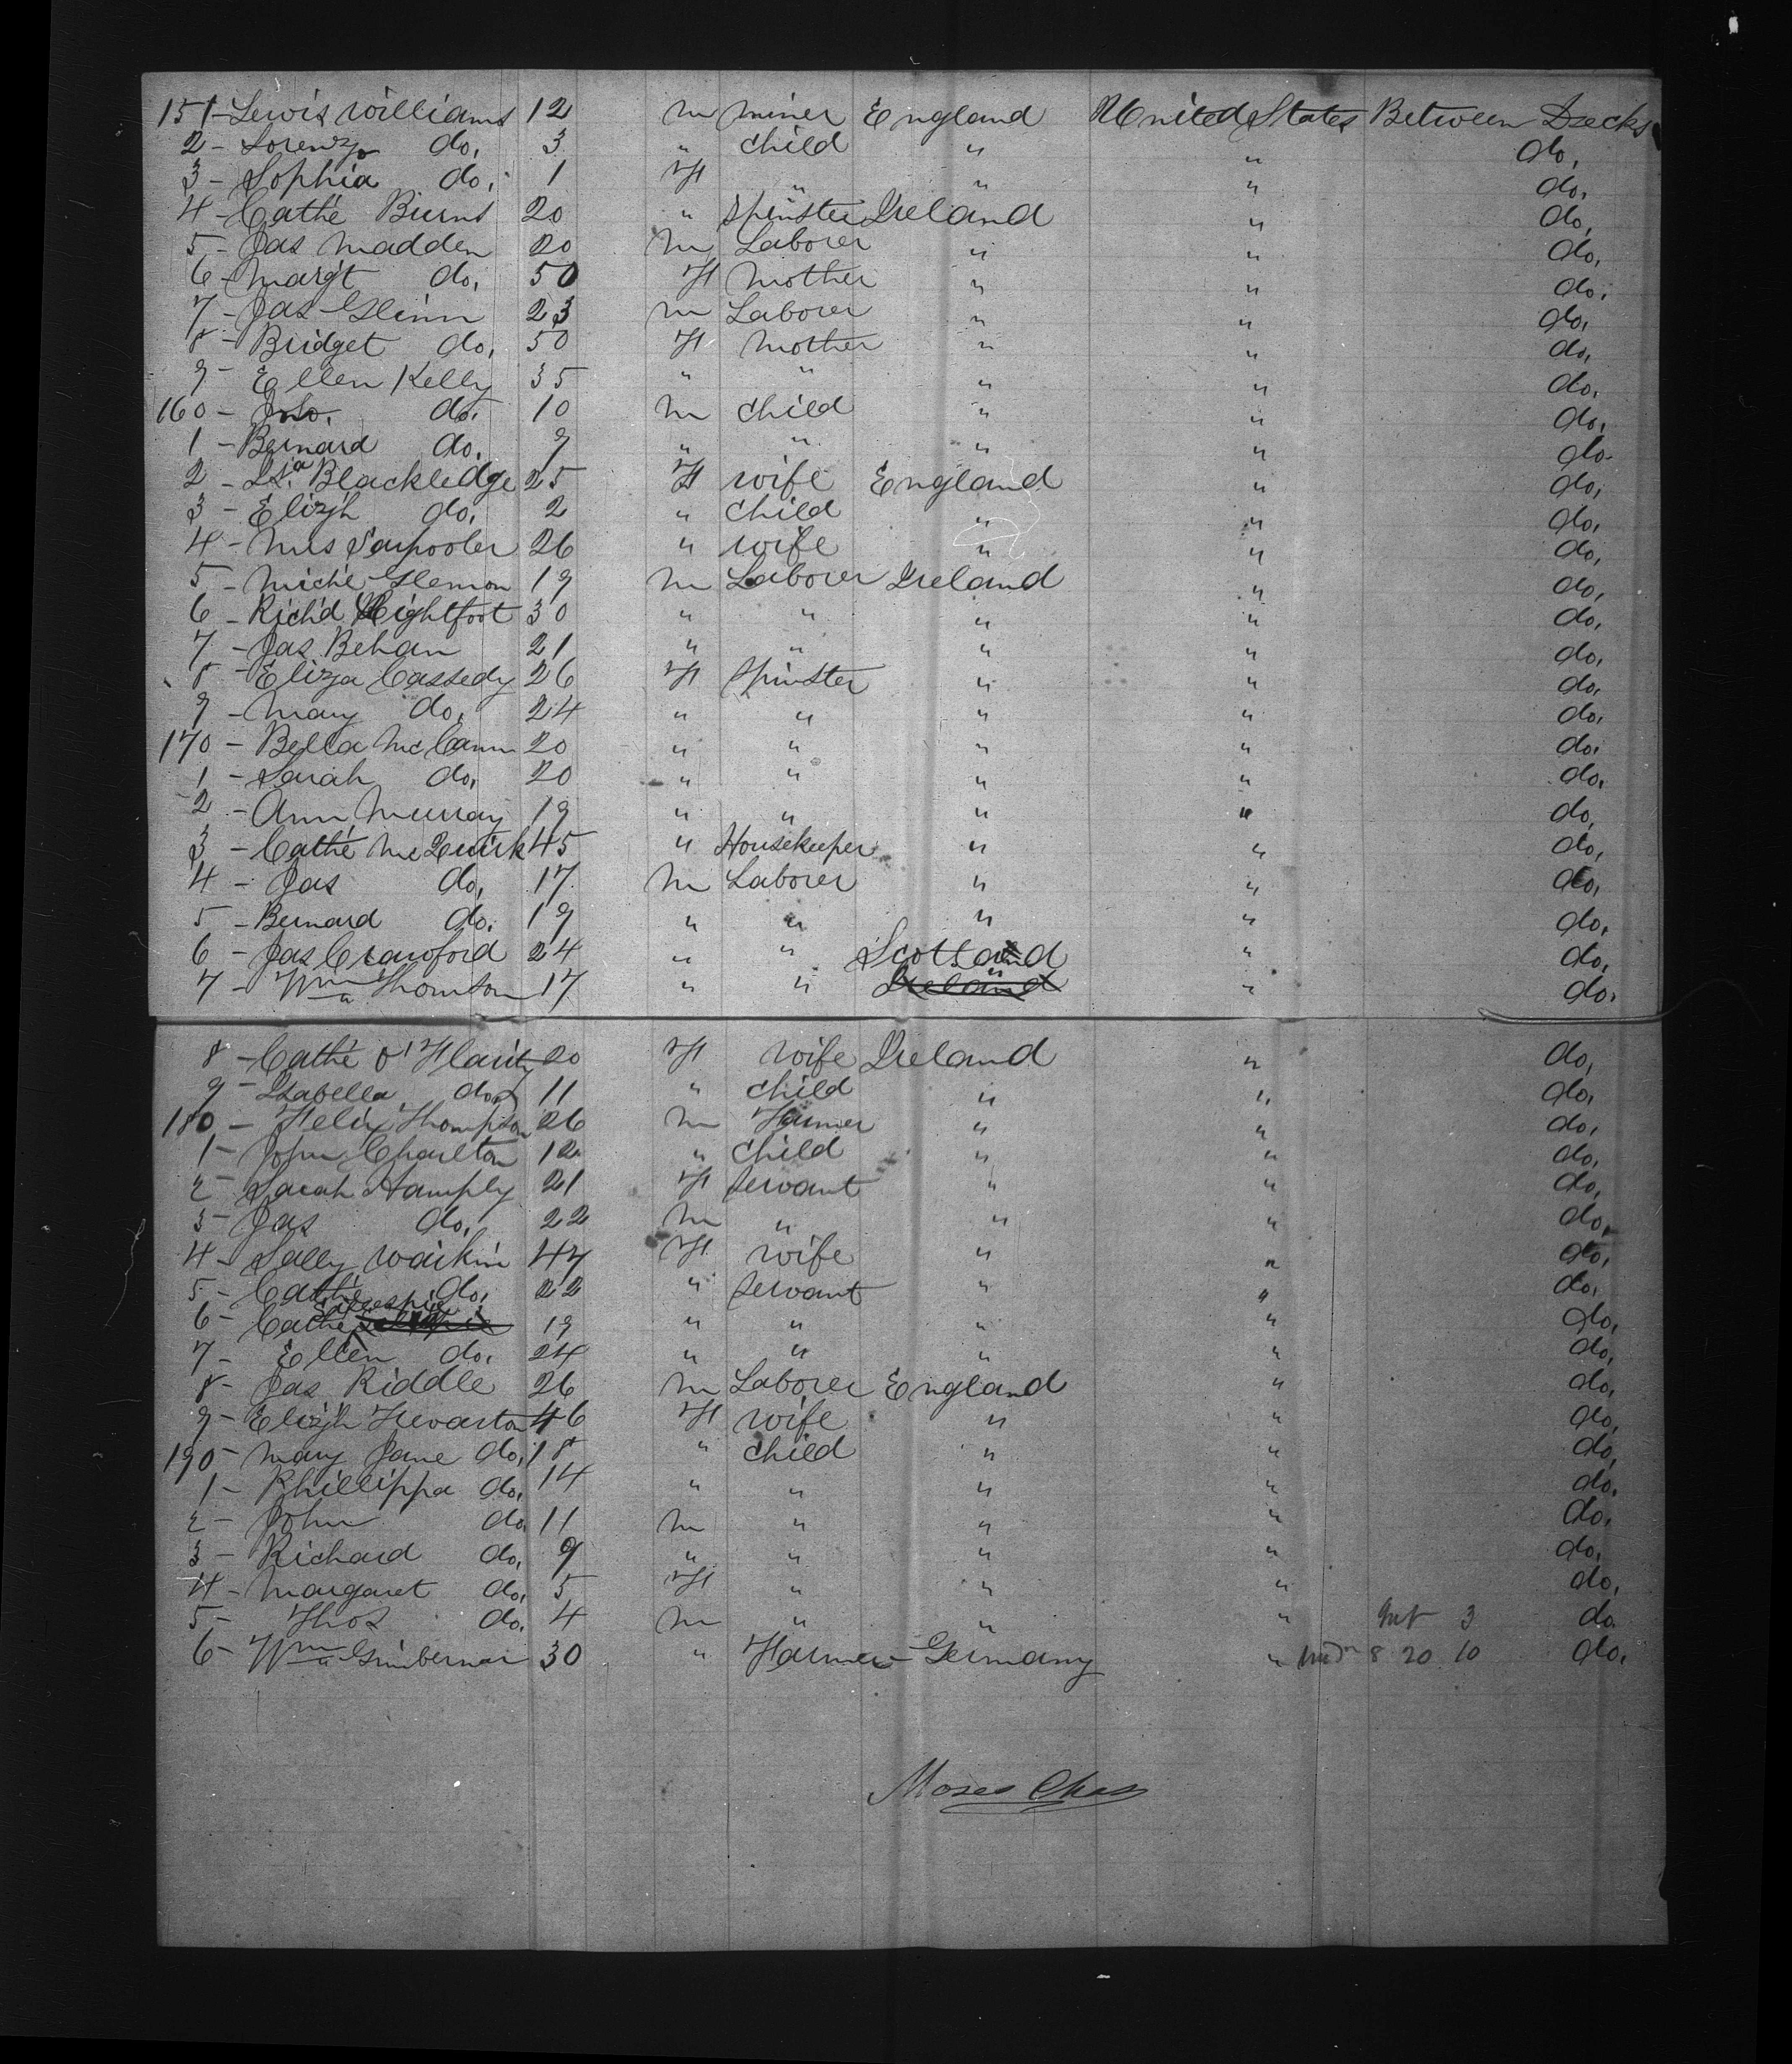 151 - Lewis Williams 12 m miner England United States Between Decks
2 - Lorenzo do. 3 " child " " do.
3 - Sophia do. 1 F " " " do.
4 - Cathe Burns 20 " spinster Ireland " do.
5 - Jas Madden 20 m Laborer " " do.
6 - Margt do. 50 F Mother " " do.
7 - Jas Glinn 23 m Laborer " " do.
8 - Bridget do. 50 F Mother " " do.
9 - Ellen Kelly 35 " " " " do.
160 - Jno. do. 10 m child " " do.
1 - Bernard do. 9 " " " " do.
2 - Blackledge 25 F wife England " do.
3 - Elizh do. 2 " child " " do.
4 - Mrs 26 " wife " " do.
5 - Miche Glennon 19 m Laborer Ireland " do.
6 - Rich'd Lightfoot 30 " " " " do.
7 - Jas Behan 21 " " " " do.
8 - Eliza Cassedy 26 F spinster " " do.
9 - Mary do. 24 " " " " do.
170 - Bella McCann 20 " " " " do.
1 - Sarah do. 20 " " " " do.
2 - Ann Murray 19 " " " " do.
3 - Cathe McQuirk 45 " Housekeeper " " do.
4 - Jas do. 17 m Laborer " " do.
5 - Bernard do. 19 " " " " do.
6 - Jas Crawford 24 " " Scotland " do.
7 - Wm Thomson 17 " " Ireland " " do.
8 - Cathe O'Harity 20 F wife Ireland " do.
9 - Isabella do. 11 " child " " do.
180 - Felix Thompson 26 m Farmer " " do.
1 - John Charlton 12 " child " " do.
2 - Sarah Hamply 21 F servant " " do.
3 - Jas do. 22 m " " " do.
4 - Sally Waikin 47 F wife " " do.
5 - Cathe do. 22 " servant " " do.
6 - Cathe Gillespie 19 " " " " do.
7 - Ellen do. 24 " " " " do.
8 - Jas Riddle 26 m Laborer England " do.
9 - Elizh Trevarton 46 F wife " " do.
190 - Mary Jane do. 18 " child " " do.
1 - Phillippa do. 14 " " " " do.
2 - John do. 11 m " " " do.
3 - Richard do. 9 " " " " do.
4 - Margaret do. 5 F " " " do.
5 - Thos do. 4 m " " " 3 do.
6 - Wm 30 " Farmer - Germany " 8 20 10 do.
Moses Chas